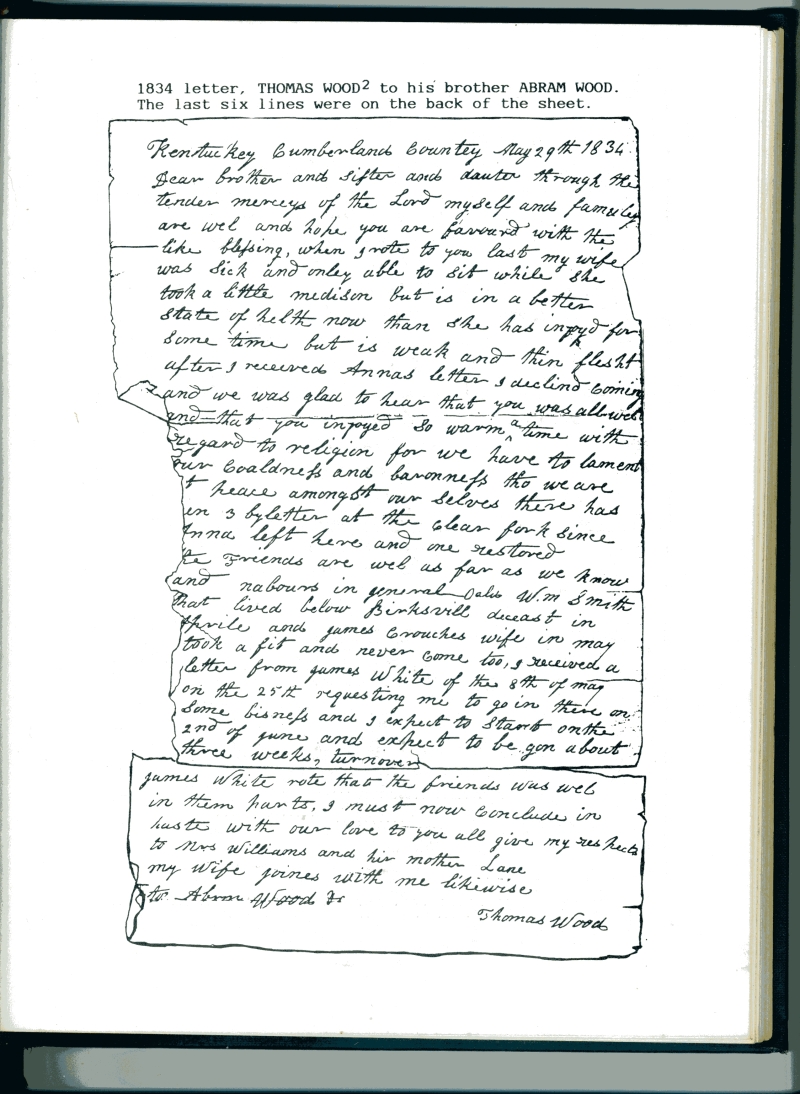 1834 letter, THOMAS WOOD² to his brother ABRAM WOOD.
The last six lines were on the back of the sheet.
Kentuckey Cumberland Countey May 29th 1834
Dear brother and sister and dauter through the
tender merceys of the Lord myself and famuley
are wel and hope you are favourd with the
like blessing, when I rote to you last my wife
was sick and onley able to sit while she
took a little medison but is in a better
state of helth now than she has injoyd for
some time but is weak and thin flesht
after I received Annas letter I declind Coming
and we was glad to hear that you was all wel
and that you injoyed so warm a time with
regard to religion for we have to lament
our Coaldness and baronness tho we are
t peace amongst our selves there has
en 3 by letter at the Clear fork since
Anna left here and one restored
he Friends are wel as far as we know
and nabours in general Oald Wm Smith
that lived below Birksvill deceast in
Aprile and James Crouches wife in may
took a fit and never Come too, I received a
letter from James White of the 8th of may
on the 25th requesting me to go in there on
some bisness and I expect to Start on the
2nd of June and expect to be gon about
three weeks, turnover
James White rote that the friends was wel
in them parts, I must now Conclude in
haste with our love to you all give my respects
to Mrs Williams and hir mother Lane
my wife joines with me likewise
to Abram Wood Sr
Thomas Wood